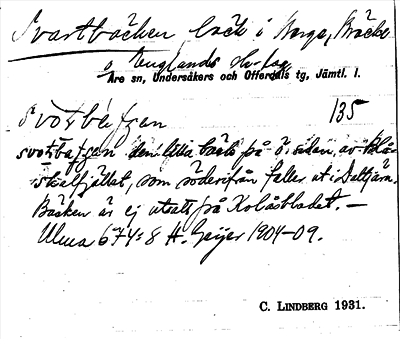 Svartbäcken, bäck i Norge, Bräcke
o Englands skr-lag
Åre sn, Undersåkers och Offerdals tg, Jämtl. l.
135
svōtbäṭʃen
svōtbäṭʃen den lilla bäck på ö. sidan av Blå-
stöttfjället, som söderifrån faller ut i Daltjärn.
Bäcken är ej utsatt på Kolåsbladet. —
Ulma 674:8 H. Geijer 1904-09.
C. LINDBERG 1931.